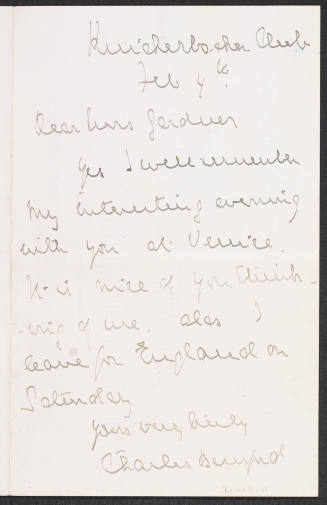 Knickerbocker Club
Feb 4th.
Dear Mrs Gardner
Yes I well remember
my interesting evening
with you at Venice.
It is nice of you think-
-ing of me. alas I
leave for England on
Saturday
yours very truly
Charles Beresford
Beresford